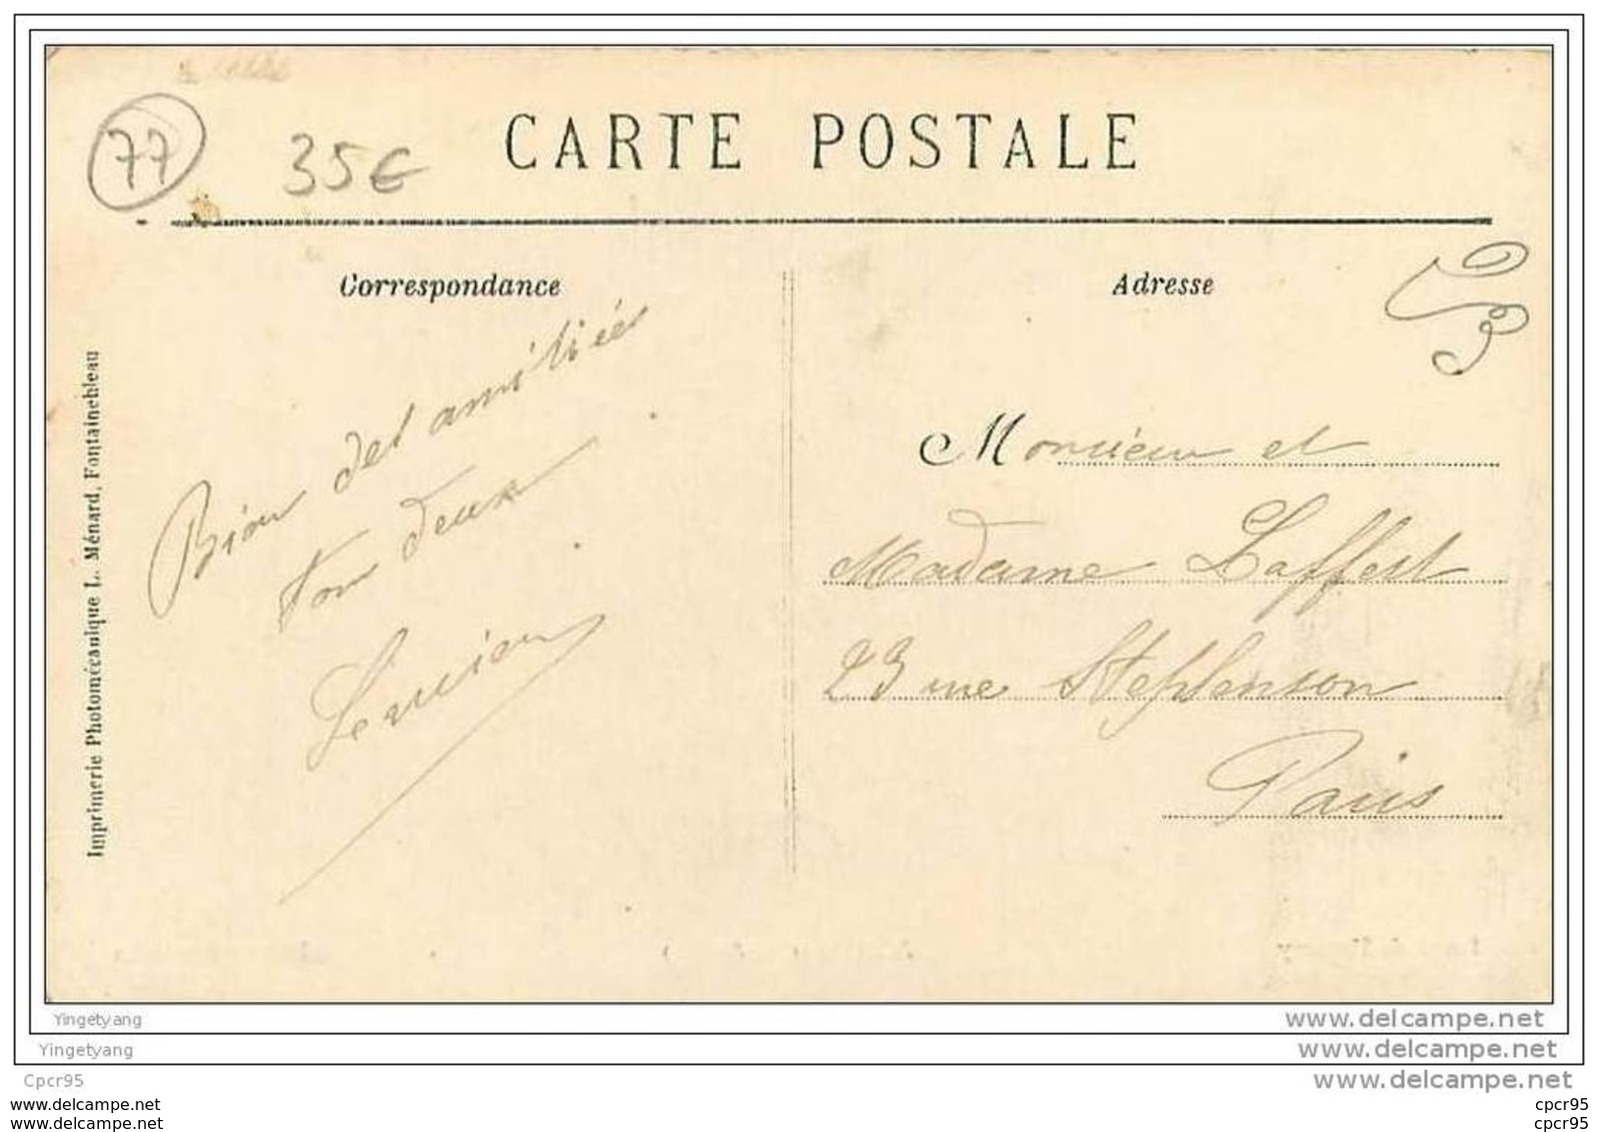 77
35€
CARTE POSTALE
Correspondance
Adresse
Imprimerie Photomécanique L. Ménard, Fontainebleau
Bien des amitiées
deux
Monsieur et
Madame Laffest
23 rue Stephenson
Paris
Yingetyang
www.delcampe.net
Yingetyang
www.delcampe.net
Cpcr95
www.delcampe.net
www.delcampe.net
cpcr95
www.delcampe.net
cpcr95